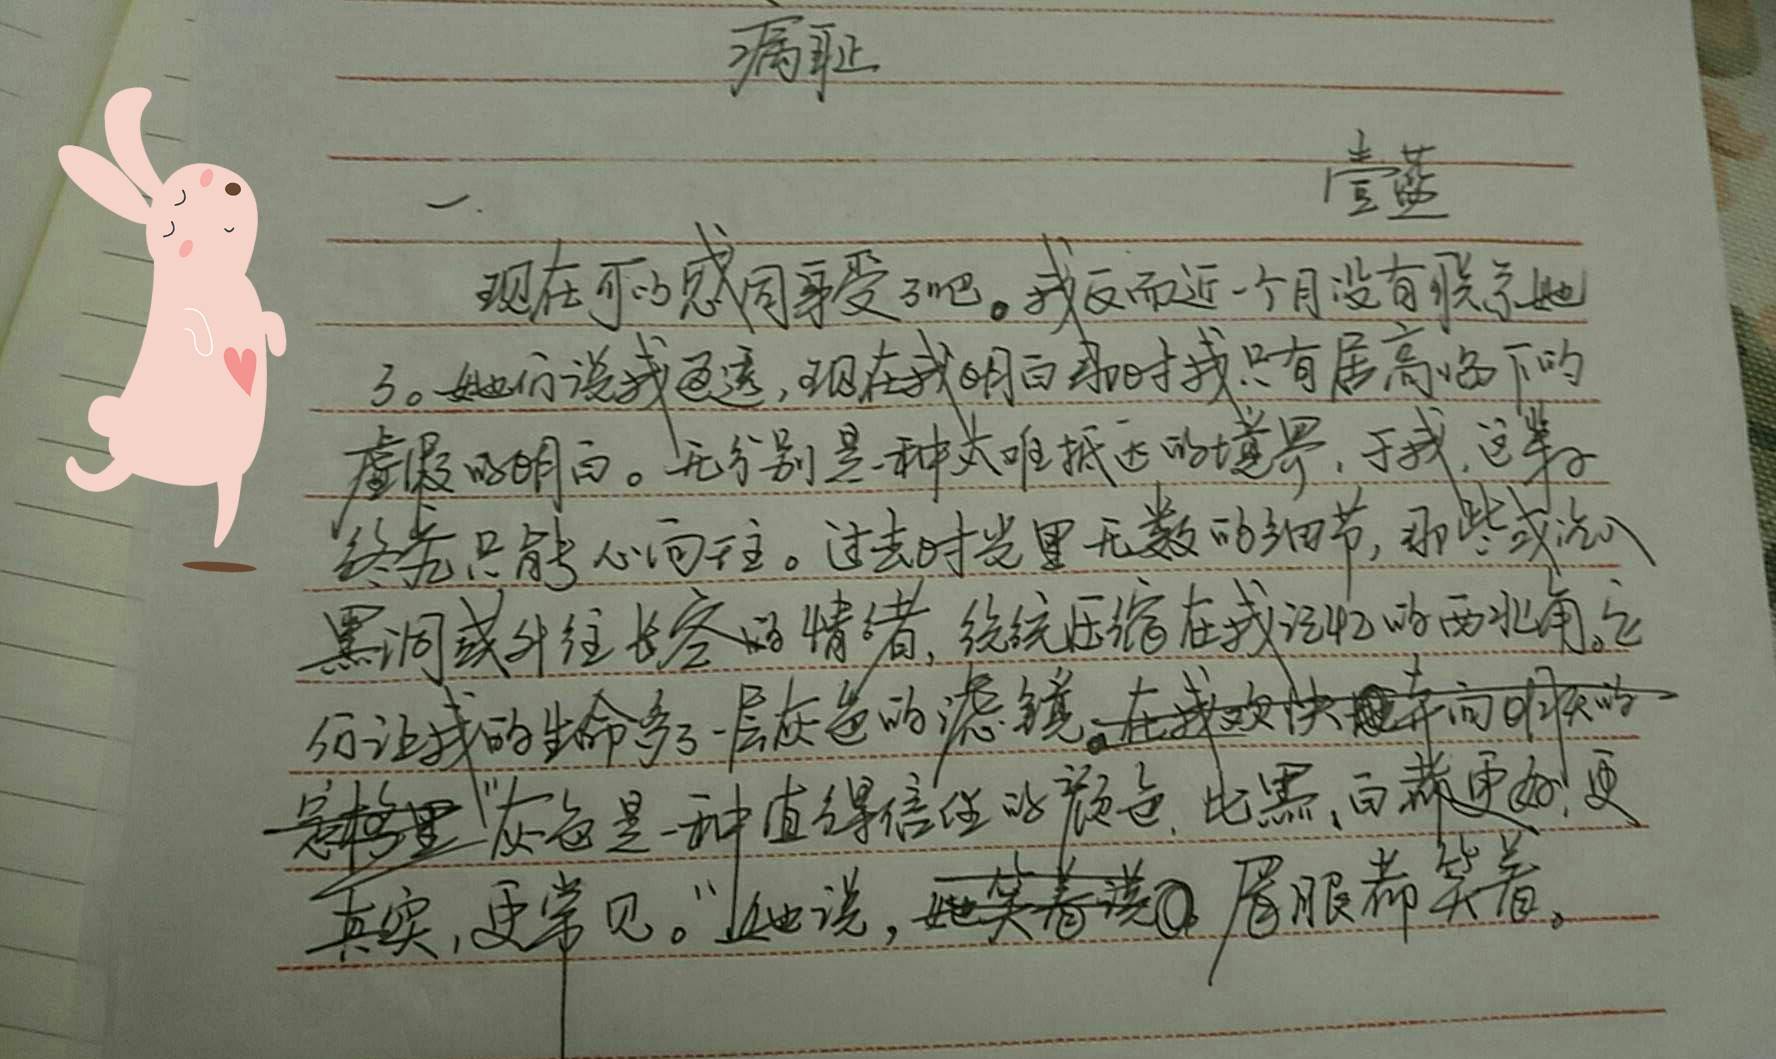 漏耻
壹蓝
一.
现在可的感同身受了吧。我反而近一个月没有联系她
了。她们说我通透,现在我明白那时我只有居高临下的
虚假的明白。无分别是一种太难抵达的境界,于我,这辈子
终究只能心向往。过去时光里无数的细节,那些或沉入
黑洞或升往长空的情绪,统统压缩在我记忆的西北角。它
们让我的生命多了一层灰色的滤镜。在我欢快地奔向明天的
旅程里"灰色是一种值得信任的颜色,比黑、白都更好,更
真实,更常见。"她说,她笑着说 眉眼都笑着。